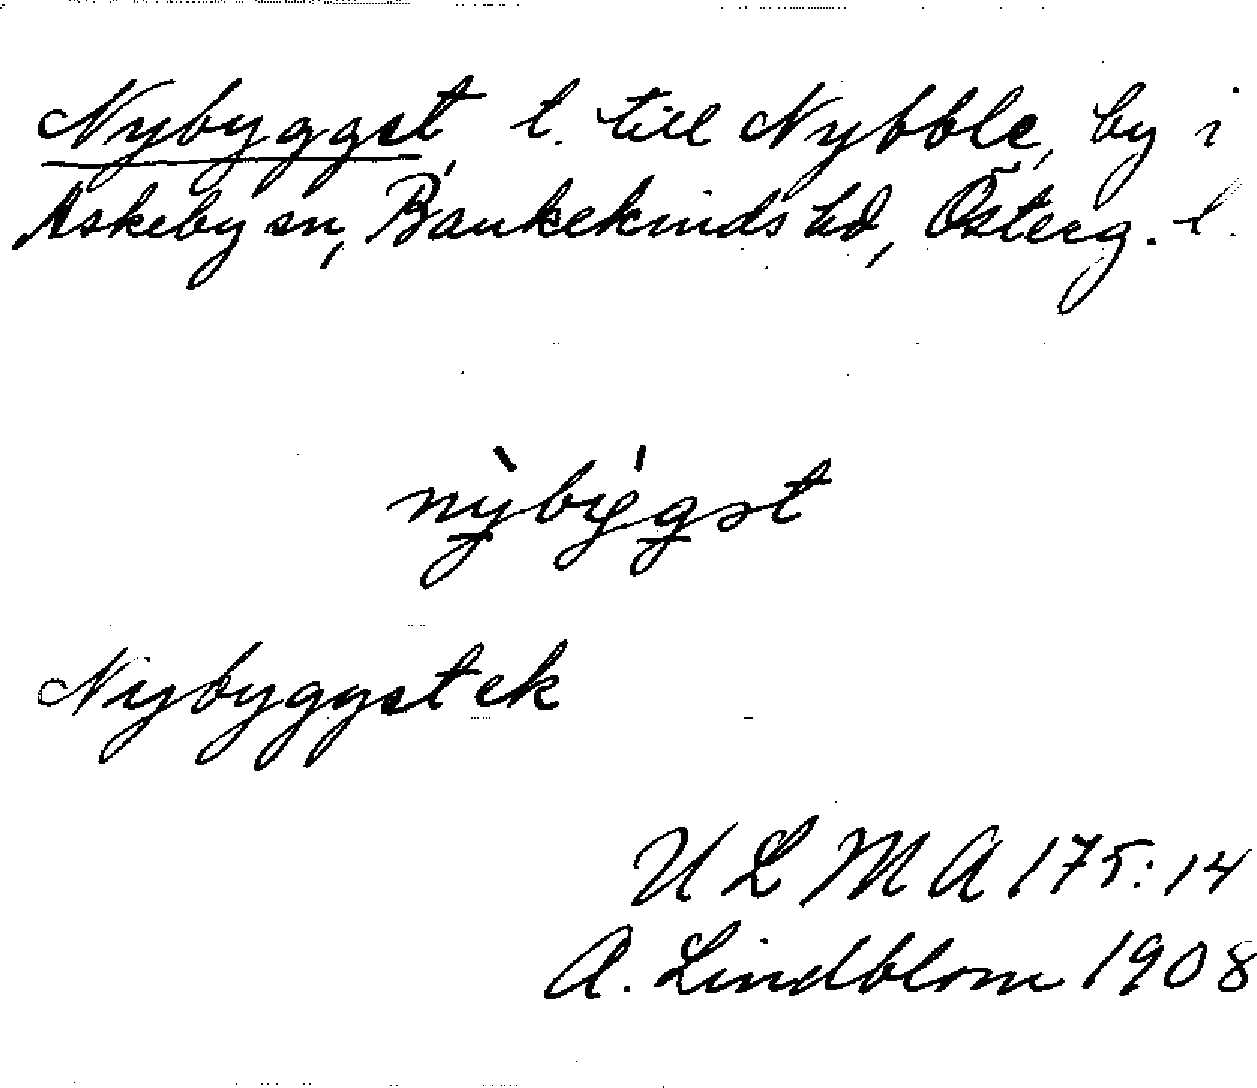 Nybyggst, t. till Nybble, by i
Askeby sn, Bankekinds hd, Österg. l.
nỳbýgst
Nybyggstek
U L M A 175:14
A. Lindblom 1908